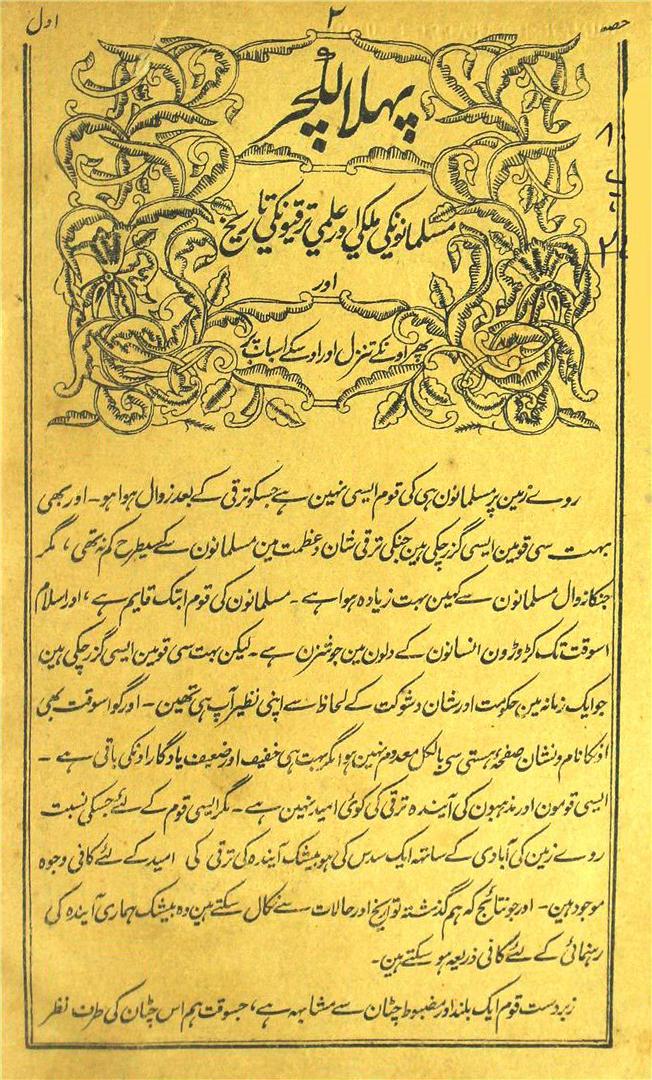 حصہ ۲ اول
پہلا لکچر
مسلمانونکی ملکی اور علمی ترقیونکی تاریخ
اور
پھر اونکے تنزل اور اوسکے اسباب پر
روے زمین پر مسلمانون ہی کی قوم ایسی نہین ہے جسکو ترقی کے بعد زوال ہوا ہو۔ اور بھی
بہت سی قومین ایسی گزر چکی ہین جنکی ترقی شان و عظمت مین مسلمانون سے کسیطرح کم نہ تھی ، مگر
جنکا زوال مسلمانون سے کہین بہت زیادہ ہوا ہے۔ مسلمانون کی قوم ابتک قایم ہے ، اور اسلام
اسوقت تک کڑوڑون انسانون کے دلون مین جوشزن ہے۔ لیکن بہت سی قومین ایسی گزر چکی ہین
جو ایک زمانہ مین حکومت اور شان و شوکت کے لحاظ سے اپنی نظیر آپ ہی تھین۔ اور گو اسوقت بھی
اونکا نام و نشان صفحہ ہستی سی بالکل معدوم نہین ہوا مگر بہت ہی خفیف اور ضعیف یادگار اونکی باقی ہے۔
ایسی قومون اور مذہبون کی آیندہ ترقی کی کوئی امید نہین ہے۔ مگر ایسی قوم کے لئے جسکی نسبت
روے زمین کی آبادی کے ساتھہ ایک سدس کی ہو بیشک آیندہ کی ترقی کی امید کے لئے کافی وجوہ
موجود ہین۔ اور جو نتائج کہ ہم گذشتہ تواریخ اور حالات سے نکال سکتے ہین وہ بیشک ہماری آیندہ کی
رہنمائی کے لئے کافی ذریعہ ہو سکتے ہین۔
زبردست قوم ایک بلند اور مضبوط چٹان سے مشابہہ ہے ، جسوقت ہم اس چٹان کی طرف نظر